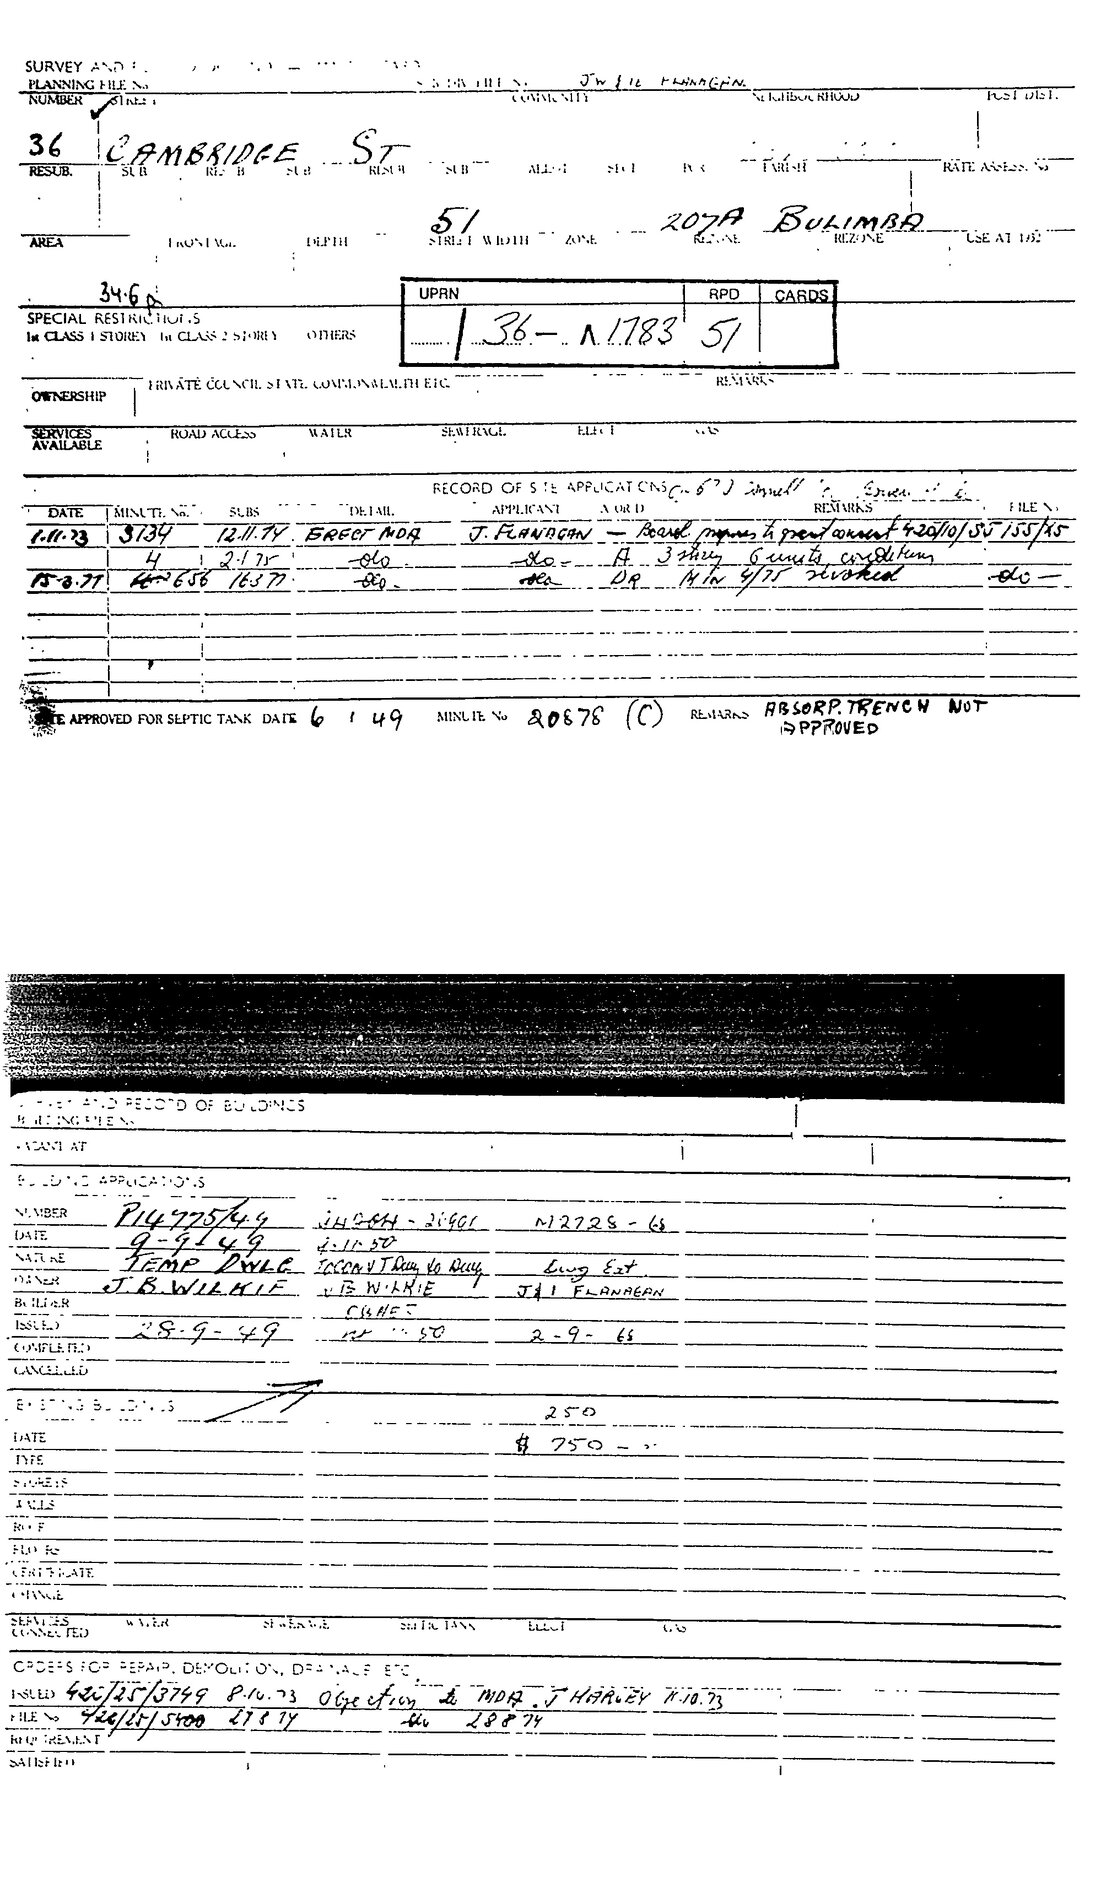 SURVEY AND
PLANNING FILE No JW & IL FLANAGAN.
NUMBER STREET COMMUNITY NEIGHBOURHOOD POST DIST.
36 CAMBRIDGE ST
RESUB. SUB RESUB SUB RESUB SUB ALLOT SECT POR PARISH RATE ASSESS. No
51 207A BULIMBA
AREA FRONTAGE DEPTH STREET WIDTH ZONE REZONE REZONE USE AT
34.6
UPRN RPD CARDS
SPECIAL RESTRICTIONS
1st CLASS 1 STOREY 1st CLASS 2 STOREY OTHERS
36 - 1783 51
OWNERSHIP PRIVATE COUNCIL STATE COMMONWEALTH ETC. REMARKS
SERVICES AVAILABLE ROAD ACCESS WATER SEWERAGE ELECT GAS
RECORD OF SITE APPLICATIONS
DATE MINUTE No. SUBS DETAIL APPLICANT A OR D REMARKS FILE No
1.11.73 3134 12.11.74 ERECT MDA J. FLANAGAN — Board proposes to grant consent 420/10/SU155/25
4 2.1.75 -do- -do- A 3 storey 6 units conditions
15.3.77 656 16.3.77 -do- -do- DR MIN 4/75 revoked -do-
SITE APPROVED FOR SEPTIC TANK DATE 6 1 49 MINUTE No 20878 (C) REMARKS ABSORP. TRENCH NOT
APPROVED
SURVEY AND RECORD OF BUILDINGS
BUILDING FILE No
VACANT AT
BUILDING APPLICATIONS
NUMBER P14775/49 M2728 - 68
DATE 9-9-49 2-11-50
NATURE TEMP DWLG Dwg Ext.
OWNER J.B. WILKIE J B WILKIE J & I FLANAGAN
BUILDER
ISSUED 28-9-49 50 2-9-68
COMPLETED
CANCELLED
EXISTING BUILDINGS 250
DATE $ 750 -
TYPE
STOREYS
WALLS
ROOF
FLOORS
CERTIFICATE
CHANGE
SERVICES CONNECTED WATER SEWERAGE SEPTIC TANK ELECT GAS
ORDERS FOR REPAIR, DEMOLITION, DRAINAGE ETC.
ISSUED 420/25/3749 8.10.73 Objection to MDA. J HARVEY 11.10.73
FILE No 420/25/5400 27 8 74 do 28 8 74
REQUIREMENT
SATISFIED